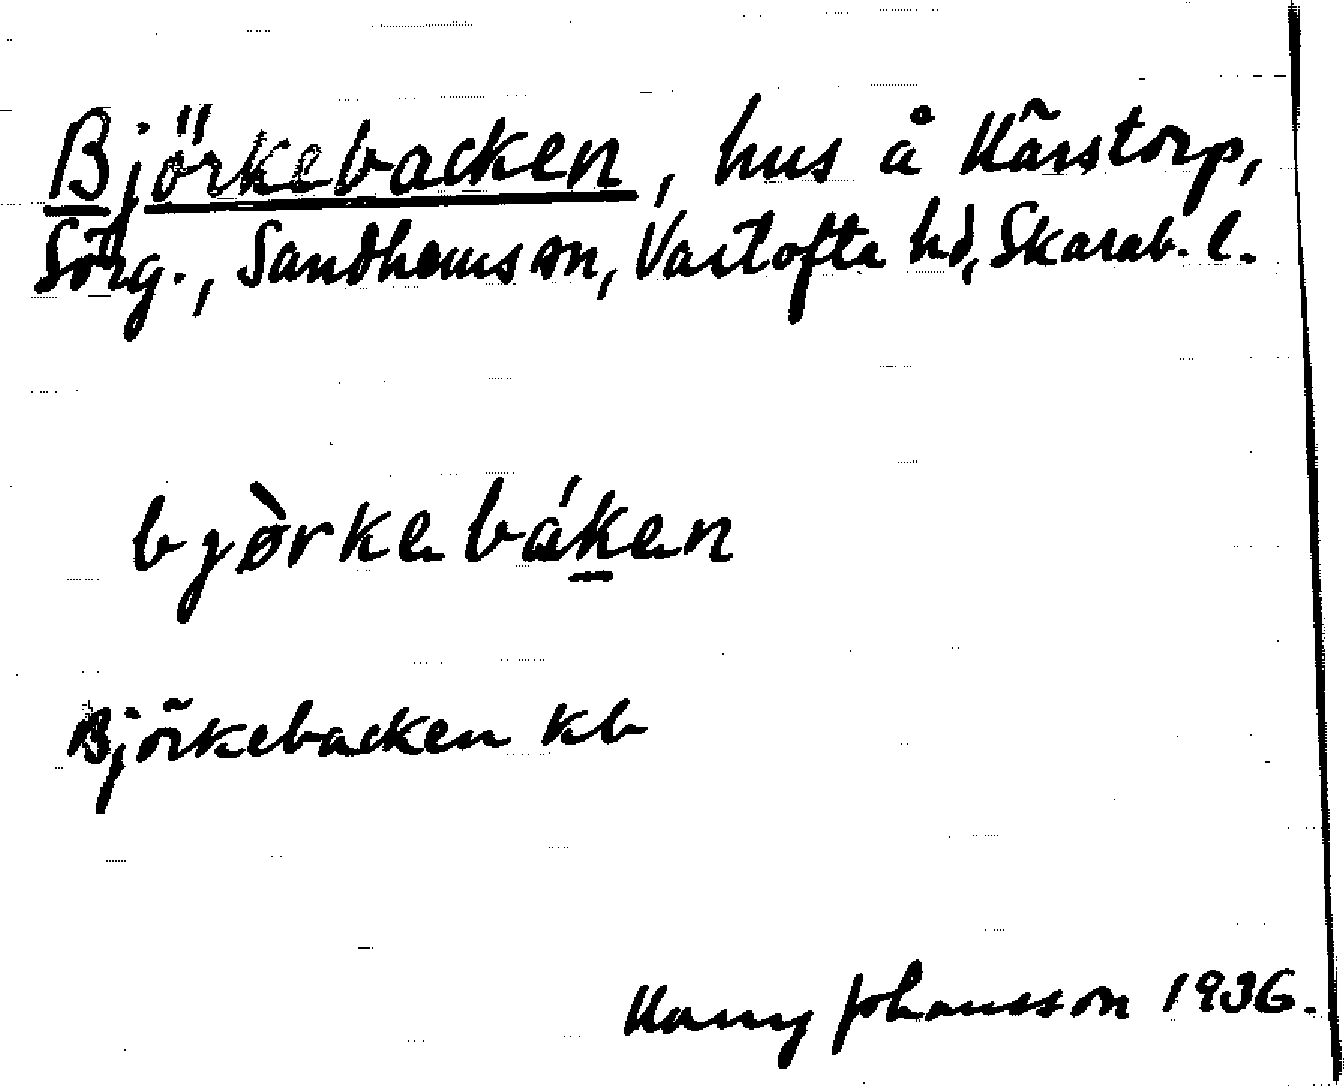 Björkebacken, hus å Kärstorp,
Sörg., Sandhems sn, Vartofta hd, Skarab. l.
bjø̀rkebáken
Björkebacken kb
Harry Johansson 1936.